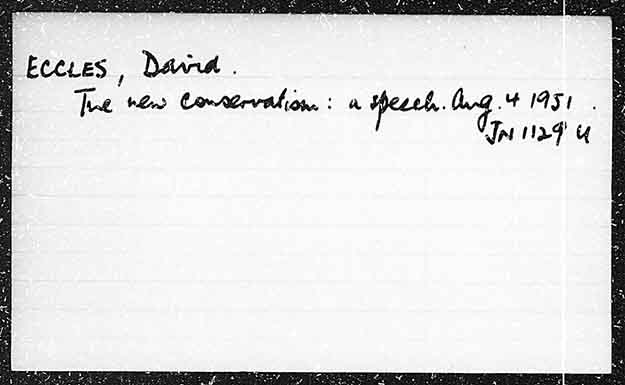 ECCLES, David.
The new conservatism: a speech. Aug. 4 1951.
JN 1129 U